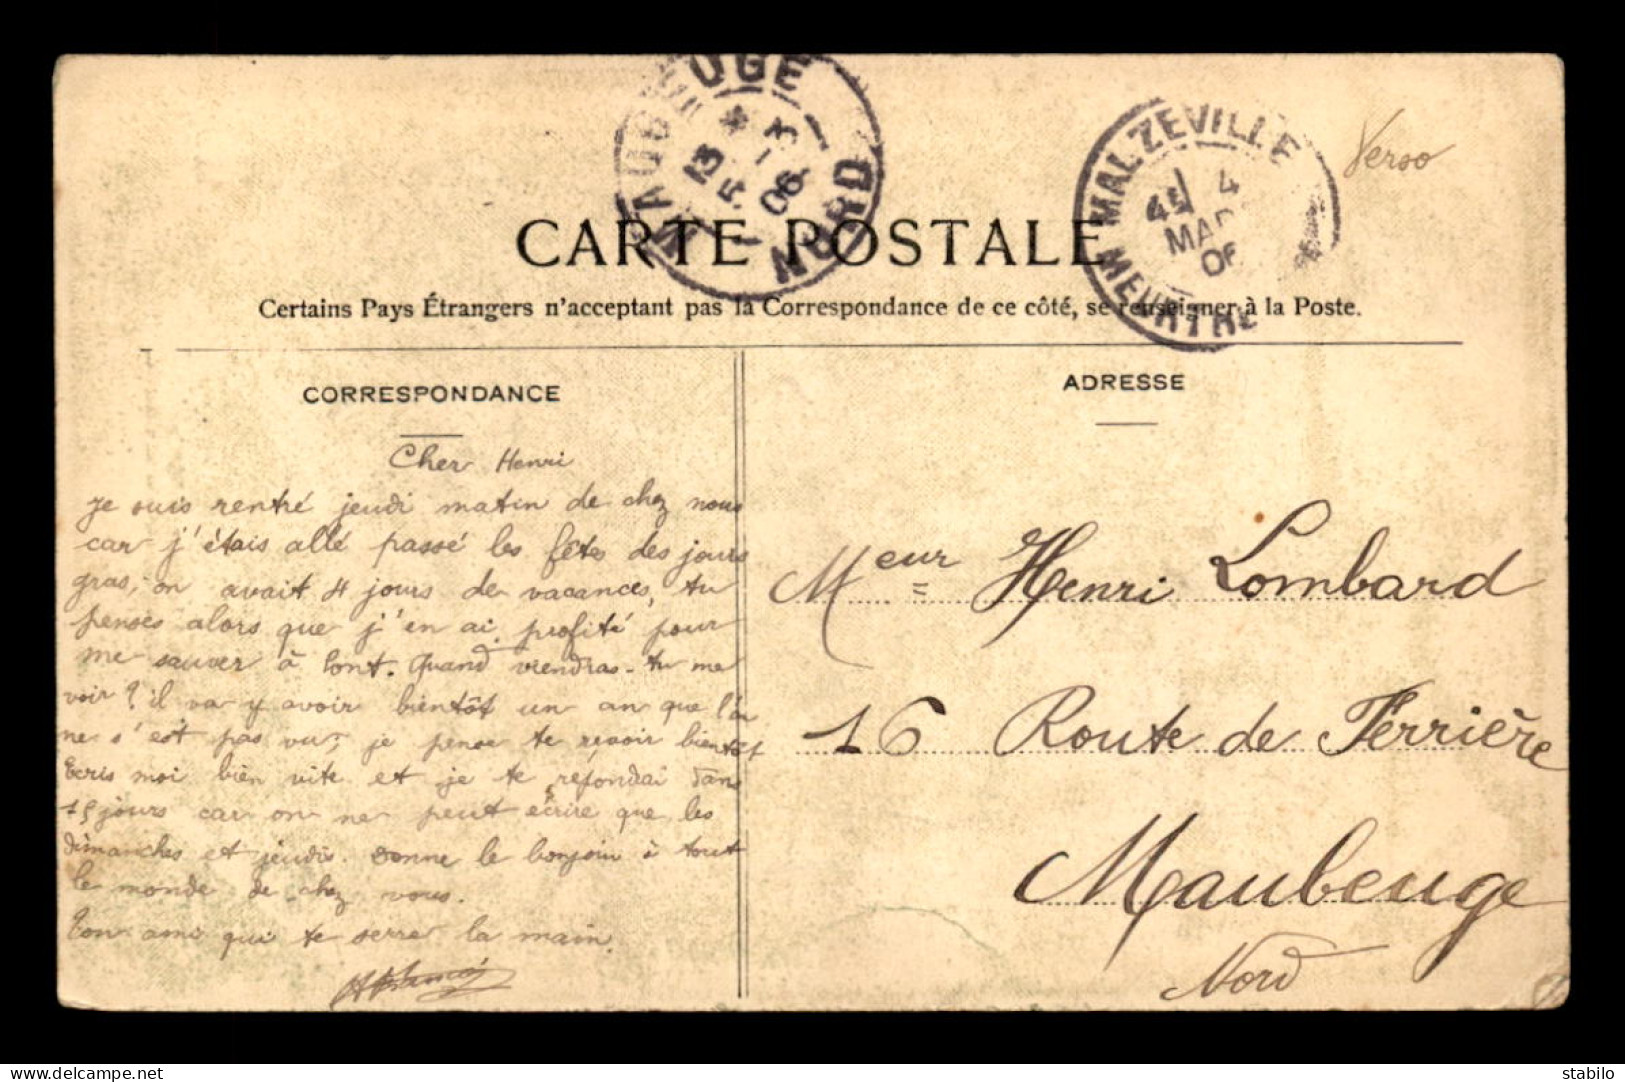 MAUBEUGE
13 *
5 - 3
06
NORD
MALZEVILLE
4
MAR
06
MEURTHE
Verso
CARTE POSTALE
Certains Pays Étrangers n'acceptant pas la Correspondance de ce côté, se renseigner à la Poste.
CORRESPONDANCE
Cher Henri
Je suis rentré jeudi matin de chez nous
car j'étais allé passé les fêtes des jours
gras, on avait 4 jours de vacances, tu
penses alors que j'en ai profité pour
me sauver à Pont. Quand viendras-tu me
voir? il va y avoir bientôt un an que l'on
ne s'est pas vu, je pense te reçvoir bientôt
Ecris moi bien vite et je te repondai dans
15 jours car on ne peut écrire que les
dimanches et jeudis. Donne le bonjour à tout
le monde de chez vous.
Ton ami qui te serre la main.
ADRESSE
Meur = Henri Lombard
16 Route de Ferrière
Maubeuge
Nord
delcampe.net
stabilo